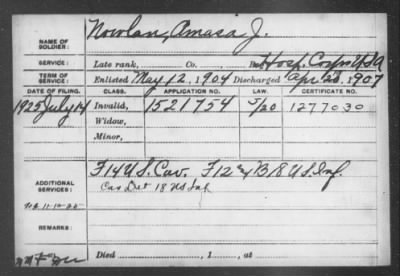 NAME OF SOLDIER: Nowlan, Amasa J.
SERVICE: Late rank, Co. Hosp. Corps USA
TERM OF SERVICE: Enlisted May 12, 1904 Discharged Apr 26, 1907
DATE OF FILING. CLASS. APPLICATION NO. LAW. CERTIFICATE NO.
1925 July 14 Invalid, 1521754 5/20 1277030
Widow,
Minor,
ADDITIONAL SERVICES: F14 U.S. Cav. F12 & B18 U.S. Inf.
Cas Det 18 US Inf
REMARKS:
Died , 1 , at